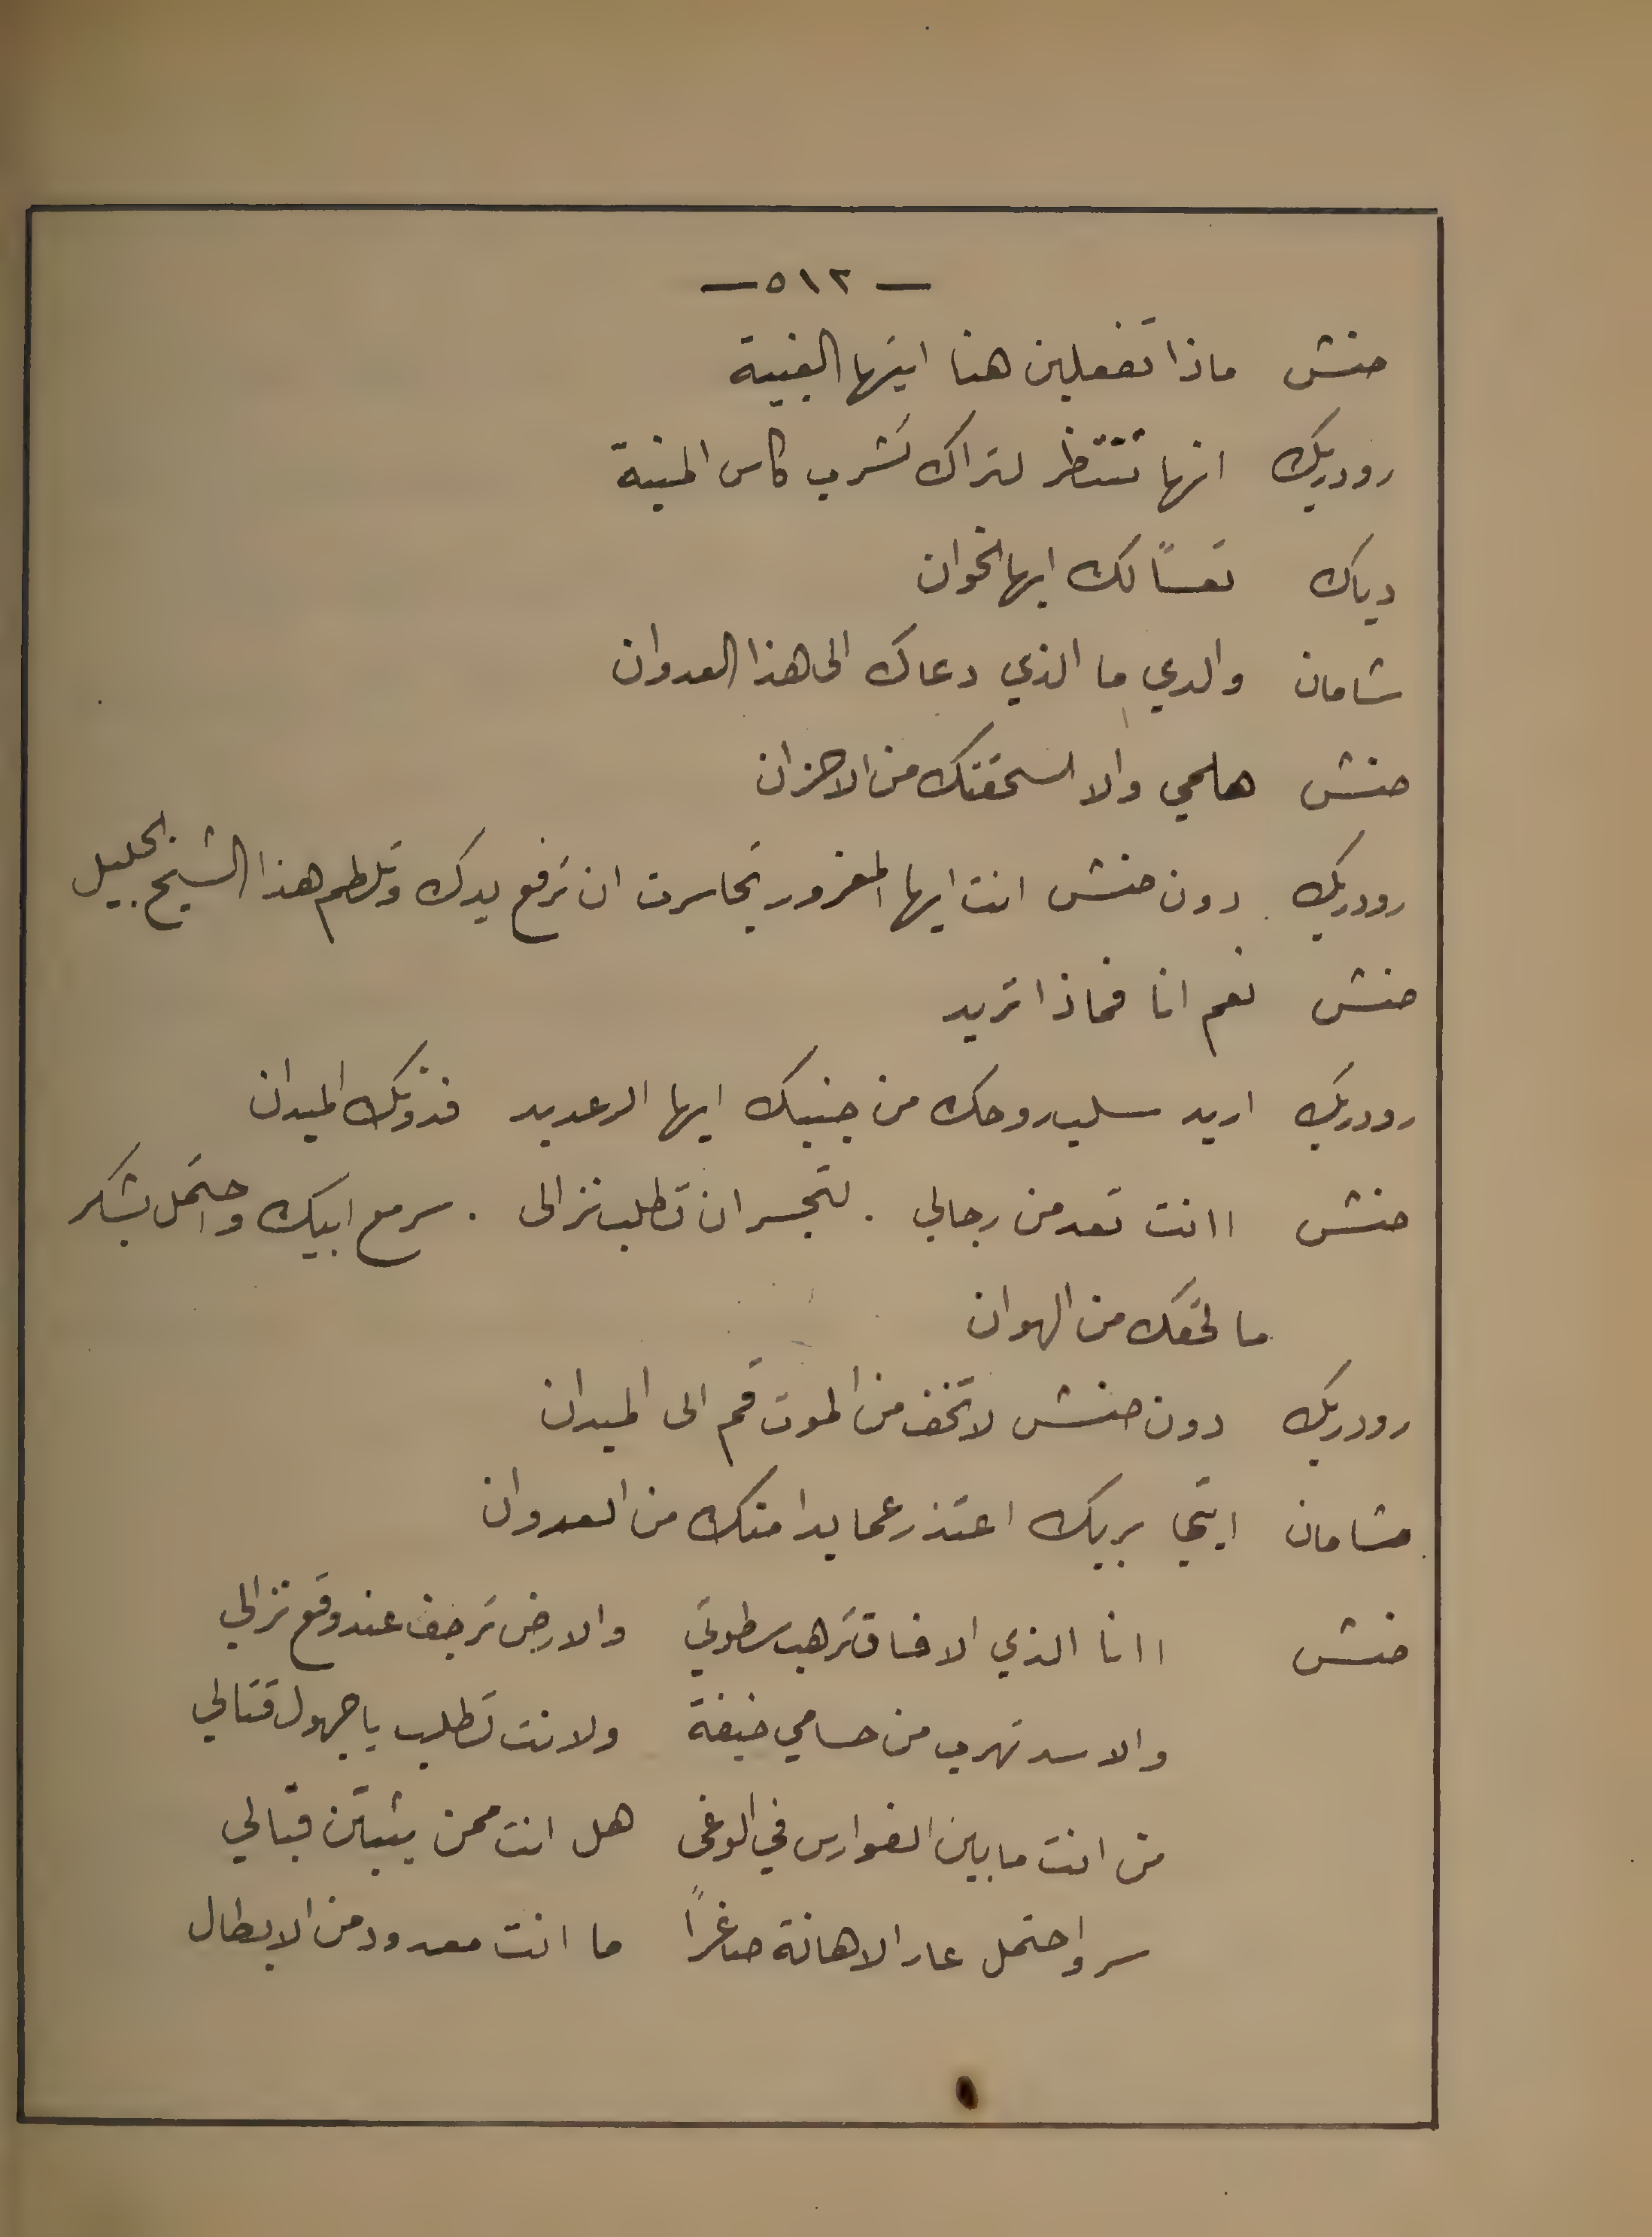 — ٥١٢ —
حنش ماذا تفعلين هنا ايتها الغبية
رودريك انها تنتظر لتراك تشرب كاس المنية
دياك تعساً لك ايها الخوان
شامان والدي ما الذي دعاك الى هذا العدوان
حنش هلمي والا سحقتك من الاحزان
رودريك دون حنش انت ايها المغرور تجاسرت ان ترفع يدك وتلطم هذا الشيخ الجليل
حنش نعم انا فماذا تريد
رودريك اريد سلب روحك من جنبيك ايها الرعديد فدونك الميدان
حنش اانت تعد من رجالي . لتجسر ان تطلب نزالى . سر مع ابيك واحتمل بشكر
ما لحقك من الهوان
رودريك دون حنش لا تخف من الموت قم الى الميدان
شامان ابتي بربك اعتذر عما بدا منك من العدوان
حنش اانا الذي الافاق ترهب سطوتي والارض ترجف عند وقع نزالي
والاسد تهرب من حسامي خيفة ولانت تطلب يا جهول قتالي
من انت ما بين الفوارس في الوغى هل انت ممن يثبتن قبالي
سر واحتمل عار الاهانة صاغراً ما انت معدود من الابطال